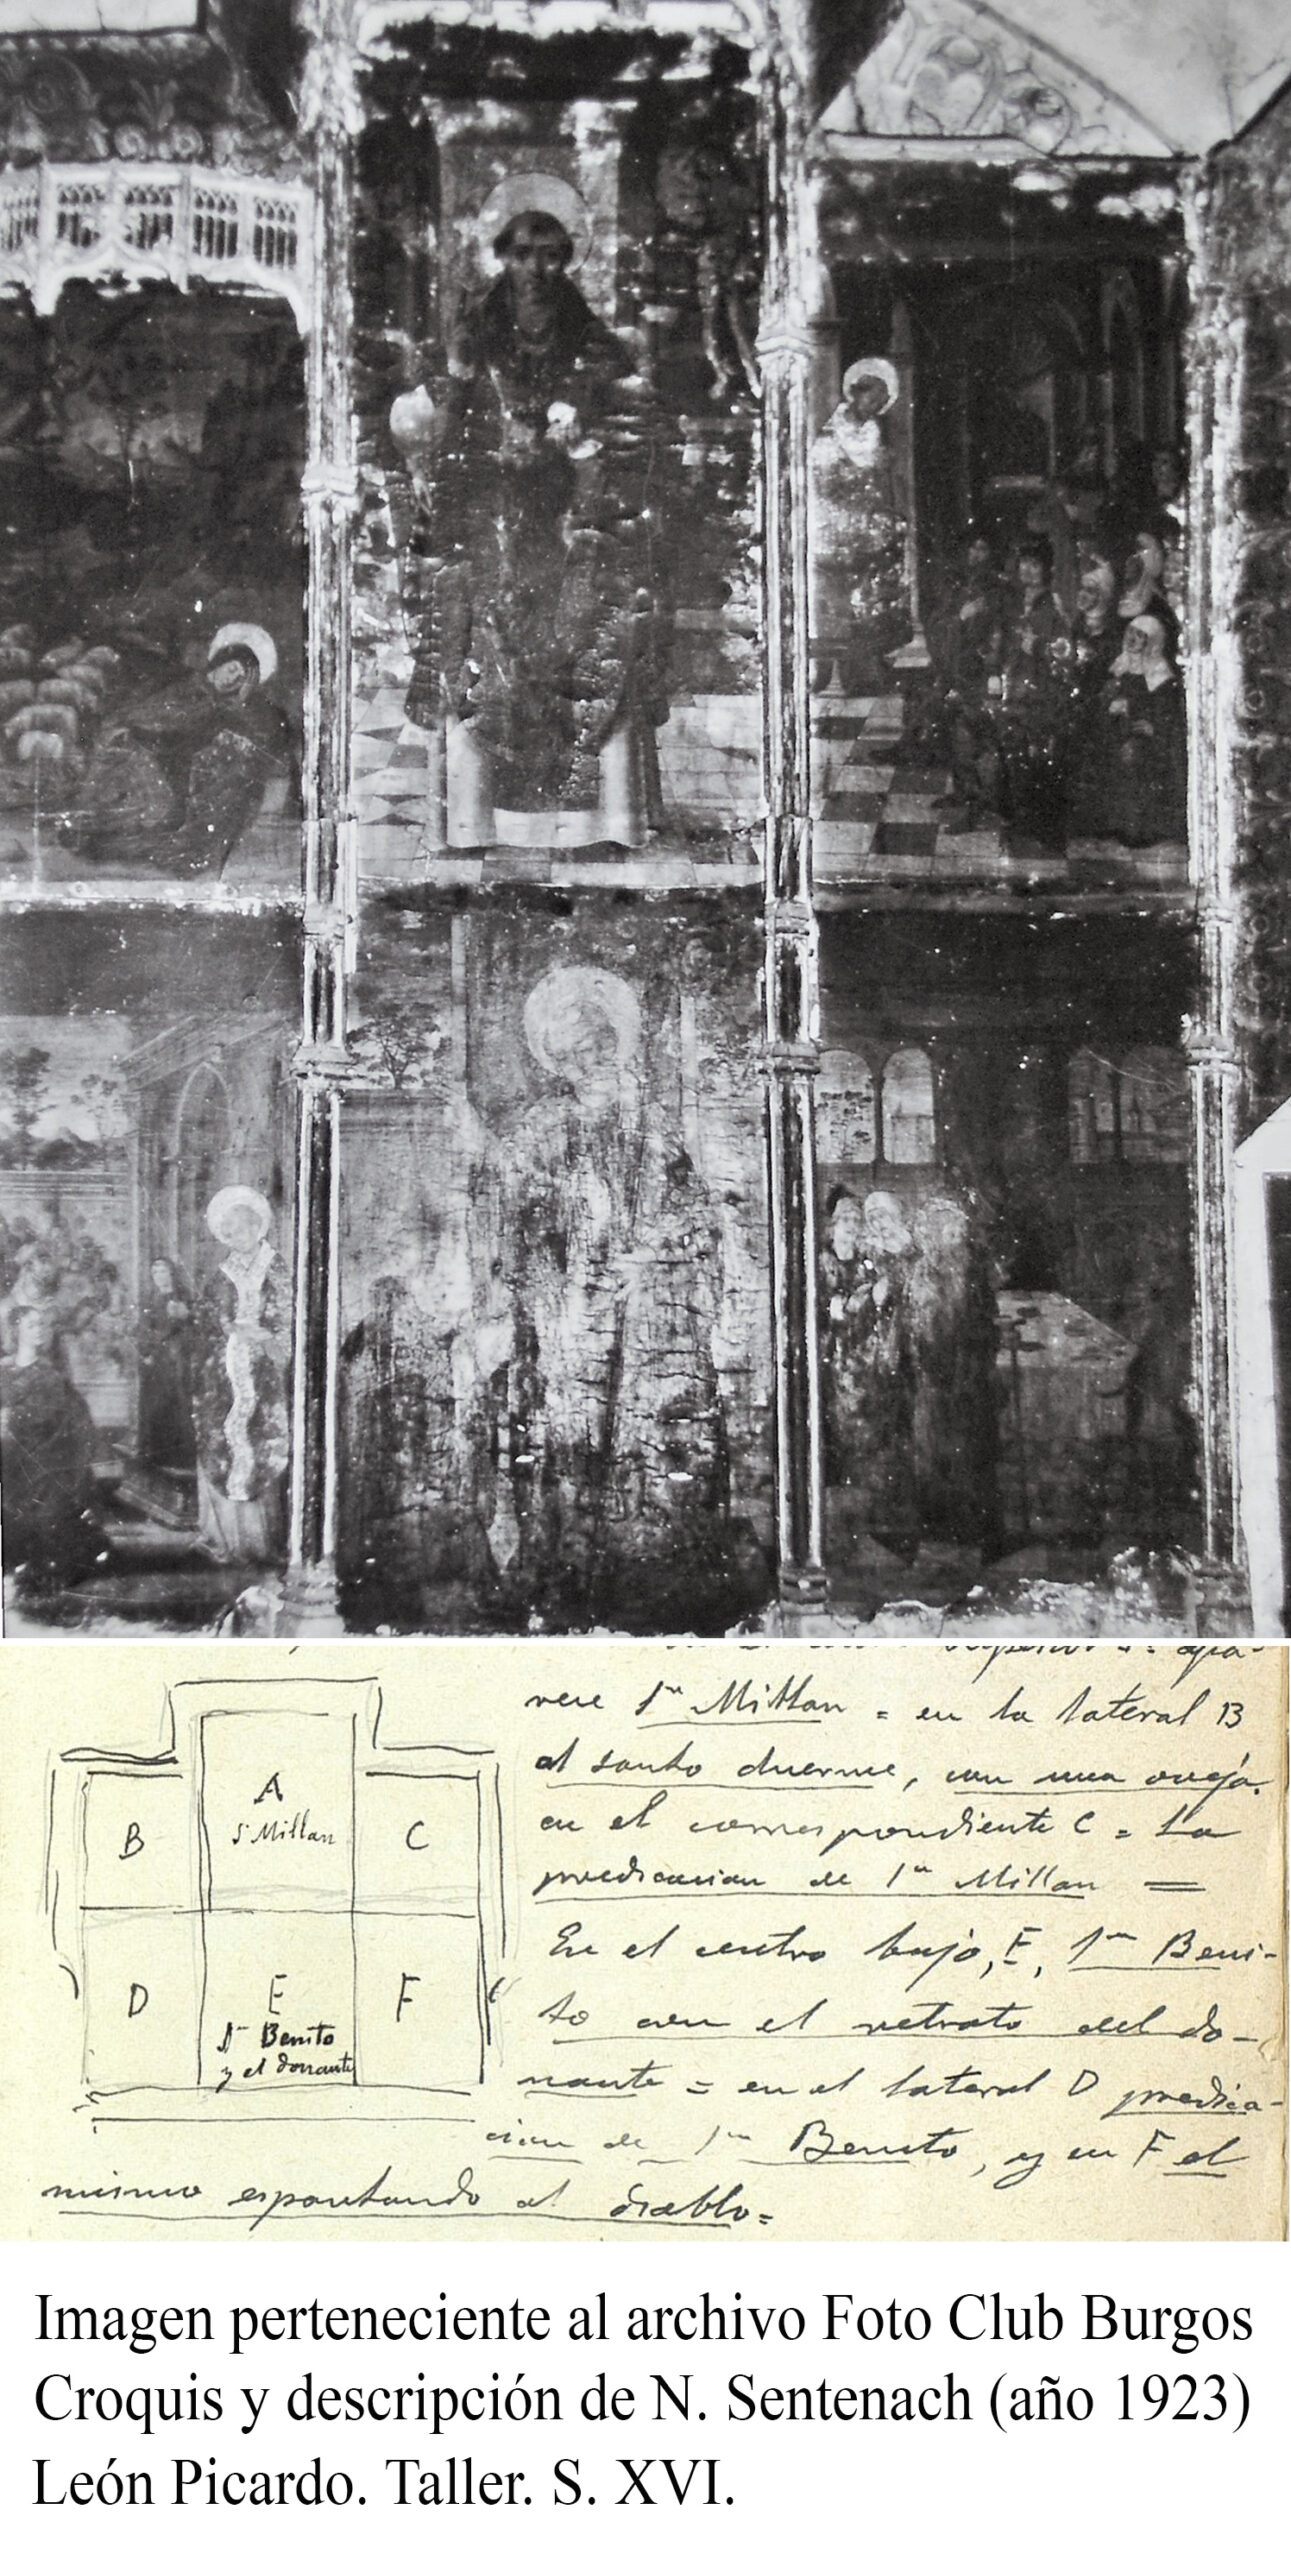 A
S Millan
B
C
D
E
Sn Benito
y el donante
F
rece Sn Millan = en la lateral B
el santo duerme, con una oveja.
en el correspondiente C = La
predicacion de Sn Millan =
En el centro bajo, E, Sn Beni-
to con el retrato del do-
nante = en el lateral D predica-
cion de Sn Benito, y en F el
mismo espantando al diablo =
Imagen perteneciente al archivo Foto Club Burgos
Croquis y descripción de N. Sentenach (año 1923)
León Picardo. Taller. S. XVI.